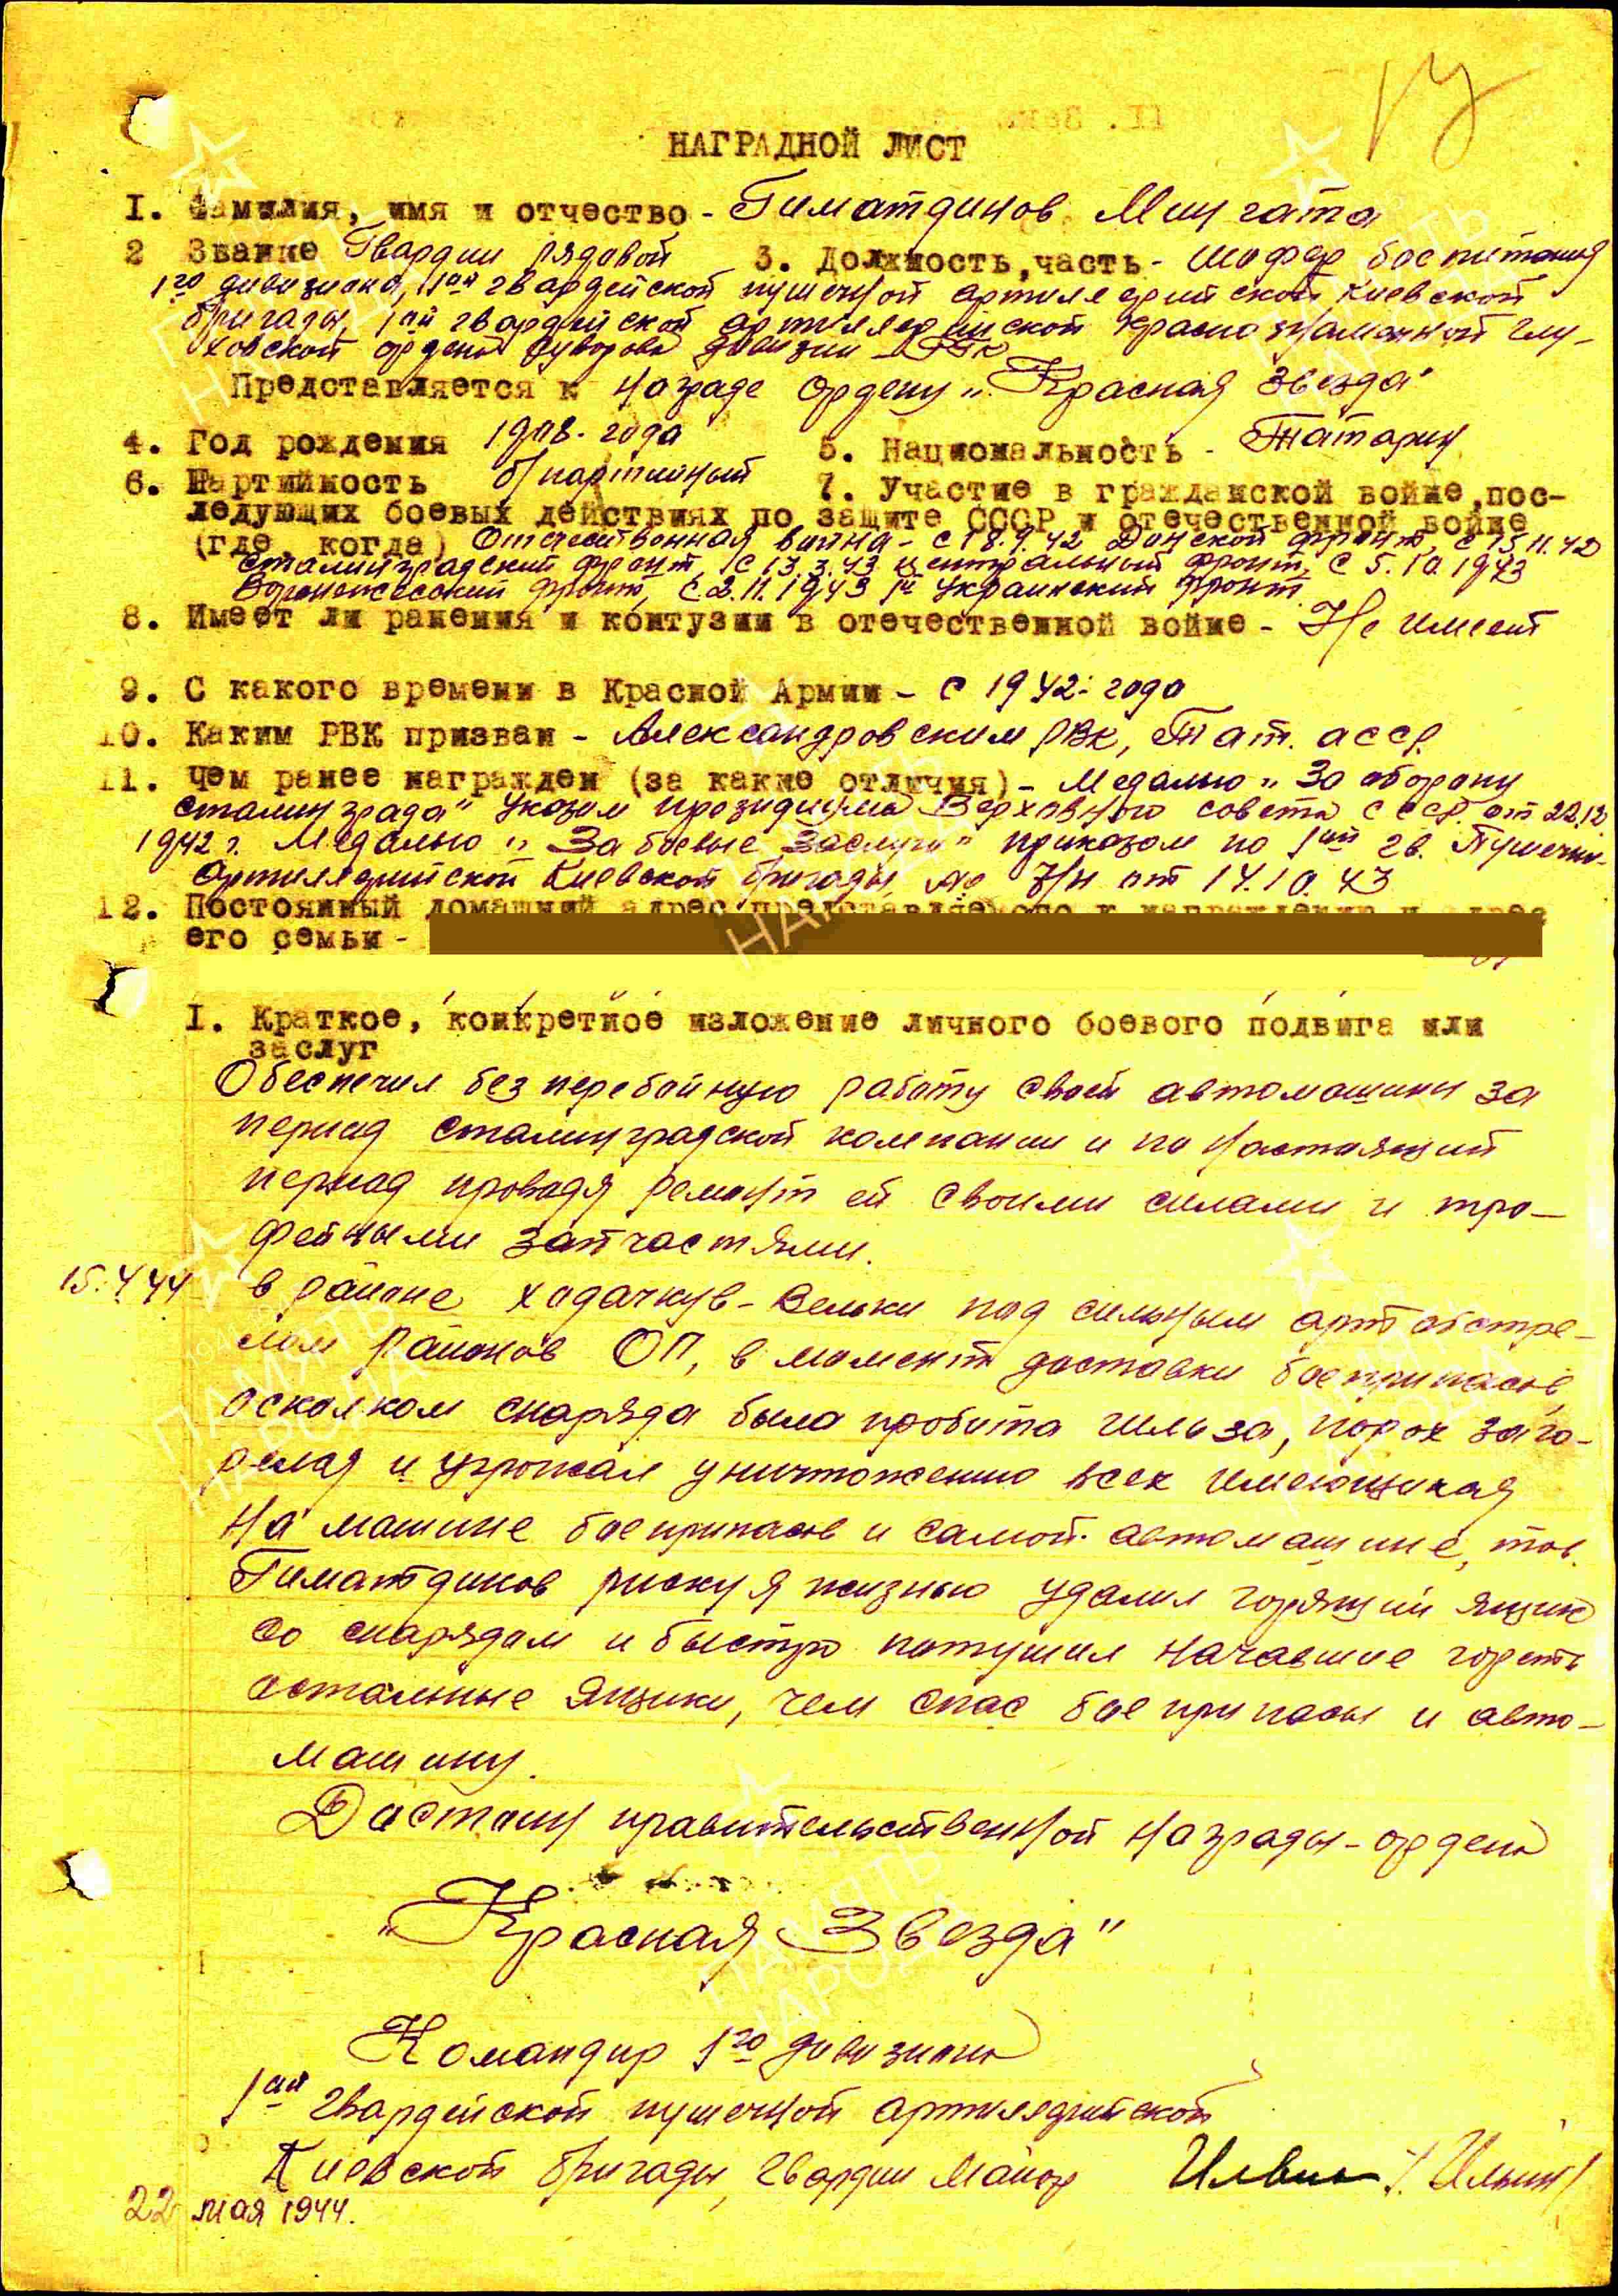 НАГРАДНОЙ ЛИСТ
1. Фамилия, имя и отчество - Гиматдинов Мингата
2 Звание Гвардии рядовой 3. Должность, часть - шофер боепитания
1го дивизиона, 1ой гвардейской пушечной артиллерийской Киевской
бригады, 1ой гвардейской артиллерийской краснознаменной Глу-
ховской ордена Суворова дивизии - РГК
Представляется к награде ордену „Красная Звезда"
4. Год рождения 1908. года 5. Национальность - Татарин
6. Партийность б/партийный 7. Участие в гражданской войне, пос-
ледующих боевых действиях по защите СССР и отечественной войне
(где, когда) Отечественная война - с 18.9.42 Донской фронт, с 15.11.42
Сталинградский фронт, с 13.3.43 центральный фронт, с 5.10.1943
Воронежский фронт, с 2.11.1943 1й Украинский фронт
8. Имеет ли ранения и контузии в отечественной войне - Не имеет
9. С какого времени в Красной Армии - с 1942 года
10. Каким РВК призван - Александровским РВК, Тат. асср.
11. Чем ранее награжден (за какие отличия) - Медалью „За оборону
Сталинграда" указом президиума Верховного совета СССР. от 22.12
1942 г. Медалью „За боевые заслуги" приказом по 1ой гв. Пушечно-
Артиллерийской Киевской бригады № 7/н от 14.10.43
12. Постоянный домашний адрес представляемого к награждению и адрес
его семьи -
I. Краткое, конкретное изложение личного боевого подвига или
заслуг
Обеспечил безперебойную работу своей автомашины за
период сталинградской компании и по настоящий
период проводя ремонт ей своими силами и тро-
фейными запчастями.
15.4.44 в районе Ходачкув-Вельки под сильным артобстре-
лом районов ОП, в момент доставки боеприпасов,
осколком снаряда была пробита гильза, порох заго-
релся и угрожал уничтожению всех имеющихся
на машине боеприпасов и самой автомашине, тов.
Гиматдинов рискуя жизнью удалил горящий ящик
со снарядом и быстро потушил начавшие гореть
остальные ящики, чем спас боеприпасы и авто-
машину.
Достоин правительственной награды - ордена
„Красная Звезда"
Командир 1го дивизиона
1ой гвардейской пушечной артиллерийской
Киевской бригады, гвардии майор Ильин /Ильин/
22 мая 1944.
ПАМЯТЬ
НАРОДА